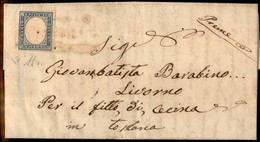 Preme
Sigr
Giovanbatista Barabino
Livorno
Per il fitto di Cecina
in toscana